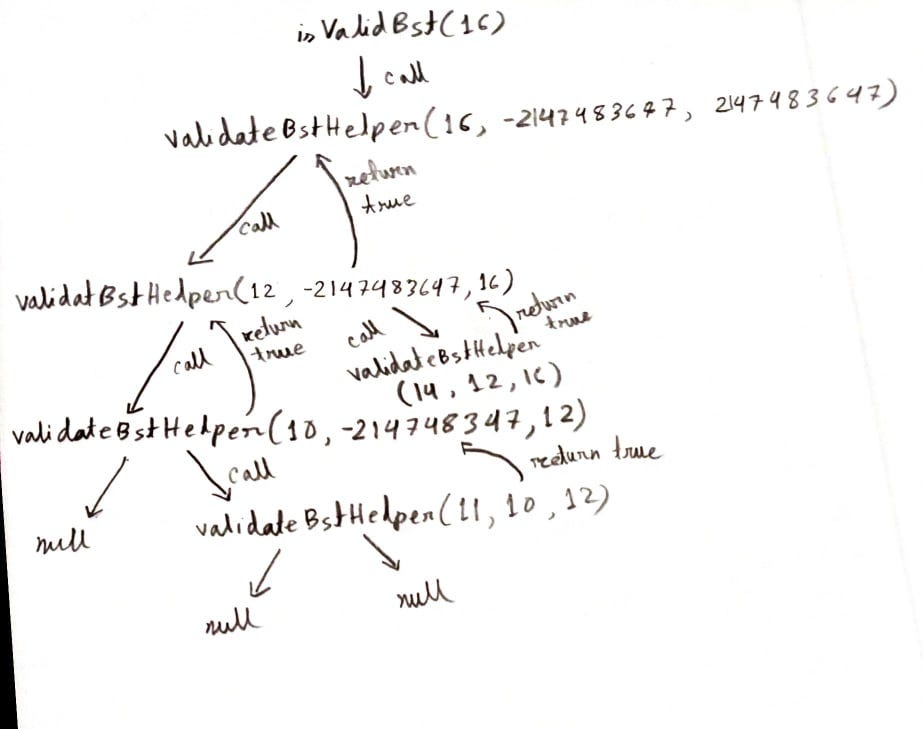 isValidBst(16)
call
validateBstHelper(16, -2147483647, 2147483647)
return
true
call
validatBstHelper(12, -2147483647, 16)
return
true
call
return
true
call
validateBstHelper
(14, 12, 16)
validateBstHelper(10, -214748347, 12)
return true
call
validateBstHelper(11, 10, 12)
null
null
null